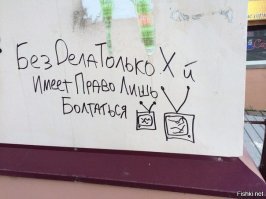 Без Dела Только Х й
Имеет Право Лишь
Болтаться
Fishki.net